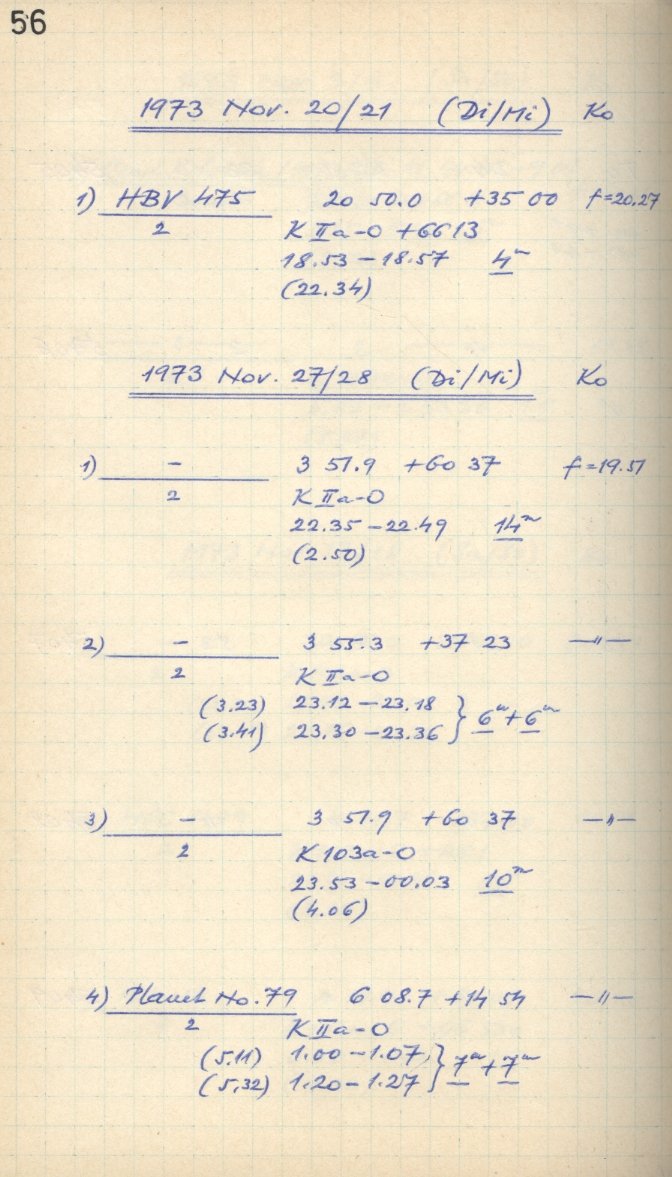 56
1973 Nov. 20/21 (Di/Mi) Ko
1) HBV 475 20 50.0 +35 00 f=20.27
2 K IIa-O +GG13
18.53 - 18.57 4m
(22.34)
1973 Nov. 27/28 (Di/Mi) Ko
1) - 3 51.9 +60 37 f=19.51
2 K IIa-O
22.35 - 22.49 14m
(2.50)
2) - 3 55.3 +37 23 —"—
2 K IIa-O
(3.23) 23.12 - 23.18
(3.41) 23.30 - 23.36 } 6m + 6m
3) - 3 51.9 +60 37 —"—
2 K103a-O
23.53 - 00.03 10m
(4.06)
4) Planet No. 79 6 08.7 +14 54 —"—
2 K IIa-O
(5.11) 1.00 - 1.07
(5.32) 1.20 - 1.27 } 7m + 7m